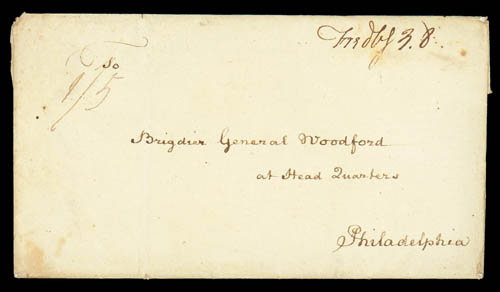 Fredbg 3.8.
To
1/5
Brigdier General Woodford
at Head Quarters
Philadelphia